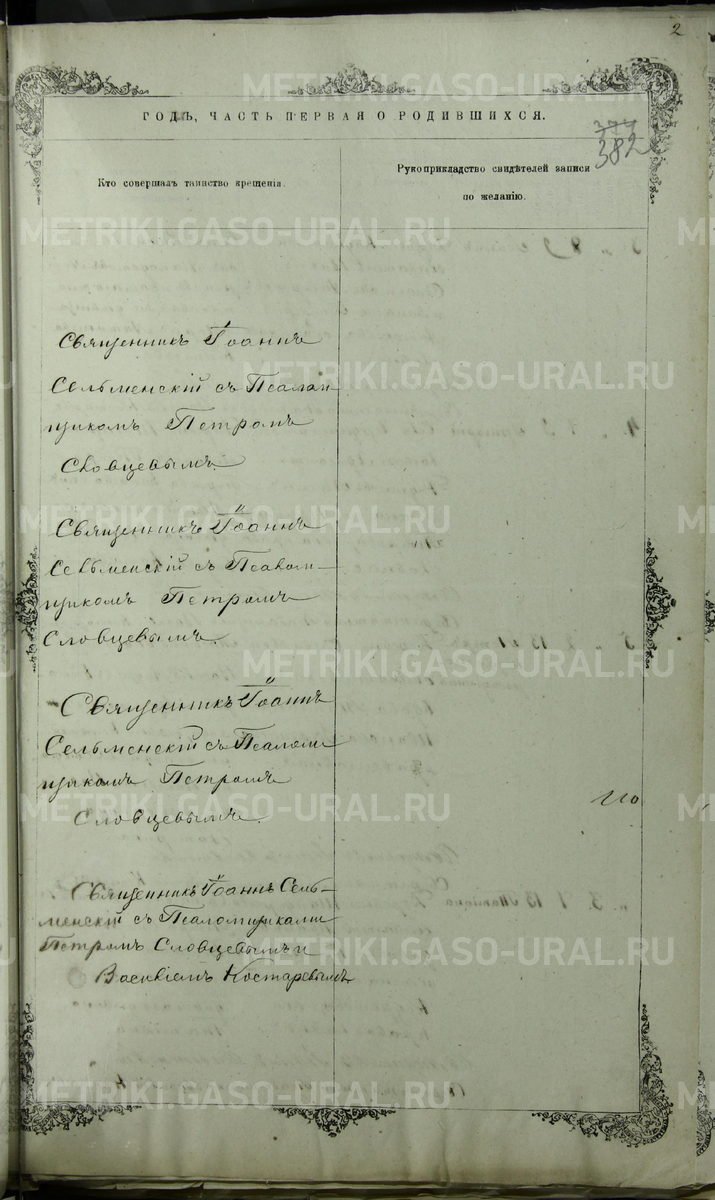 2
ГОДЪ, ЧАСТЬ ПЕРВАЯ О РОДИВШИХСЯ.
377
382
Кто совершалъ таинство крещенія.
Рукоприкладство свидѣтелей записи
по желанію.
Священникъ Іоаннъ
Сельменскій съ Псалом-
щикомъ Петромъ
Словцевымъ.
Священникъ Іоаннъ
Сельменскій съ Псалом-
щикомъ Петромъ
Словцевымъ.
Священникъ Іоаннъ
Сельменскій съ Псалом-
щикомъ Петромъ
Словцевымъ.
Священникъ Іоаннъ Сель-
менскій съ Псаломщиками
Петромъ Словцевымъ и
Василіемъ Костаревымъ
METRIKI.GASO-URAL.RU